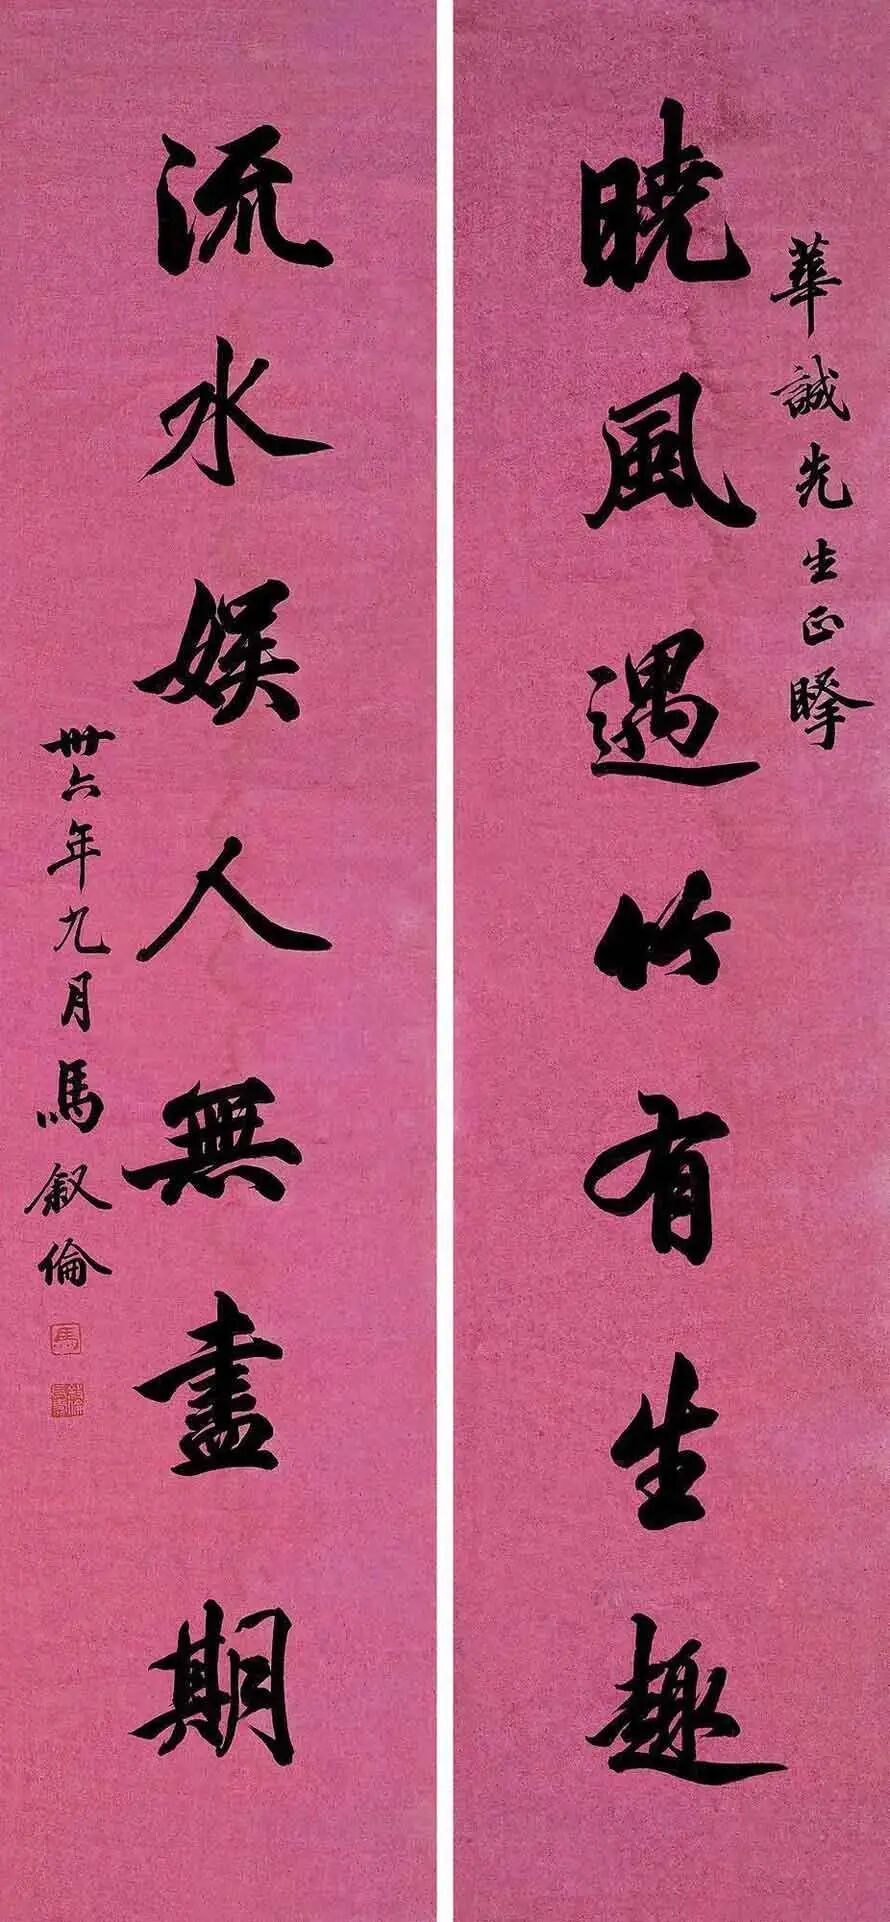 華誠先生正掔
曉風遇竹有生趣
流水娱人無盡期
卅六年九月馬叙倫
馬